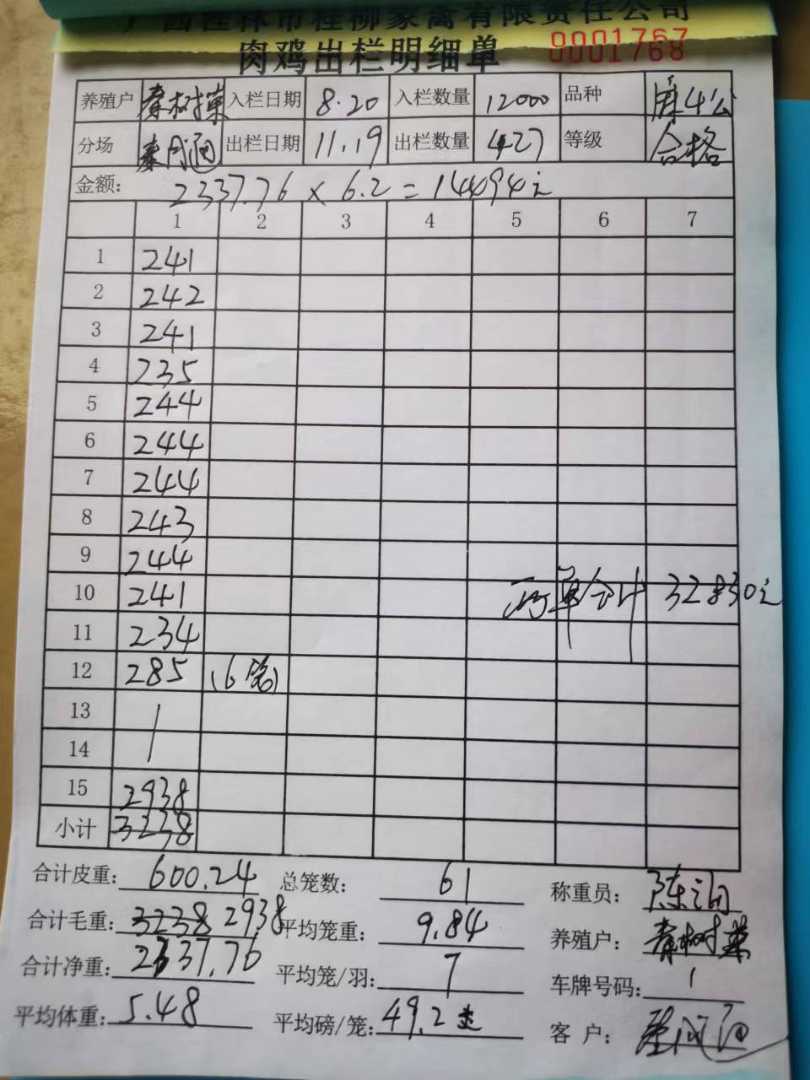 广西桂林市桂柳家禽有限责任公司
肉鸡出栏明细单 0001768
养殖户 秦树荣 入栏日期 8.20 入栏数量 12000 品种 麻4公
分场 出栏日期 11.19 出栏数量 427 等级 合格
金额: 2337.76 × 6.2 = 14494元
1 2 3 4 5 6 7
1 241
2 242
3 241
4 235
5 244
6 244
7 244
8 243
9 244
10 241 两单合计 32830元
11 234
12 285 (6笼)
13
14
15 2938
小计 3238
合计皮重: 600.24 总笼数: 61 称重员:
合计毛重: 3238 2938 平均笼重: 9.84 养殖户: 秦树荣
合计净重: 2337.76 平均笼/羽: 7 车牌号码: 1
平均体重: 5.48 平均磅/笼: 49.2 客户: